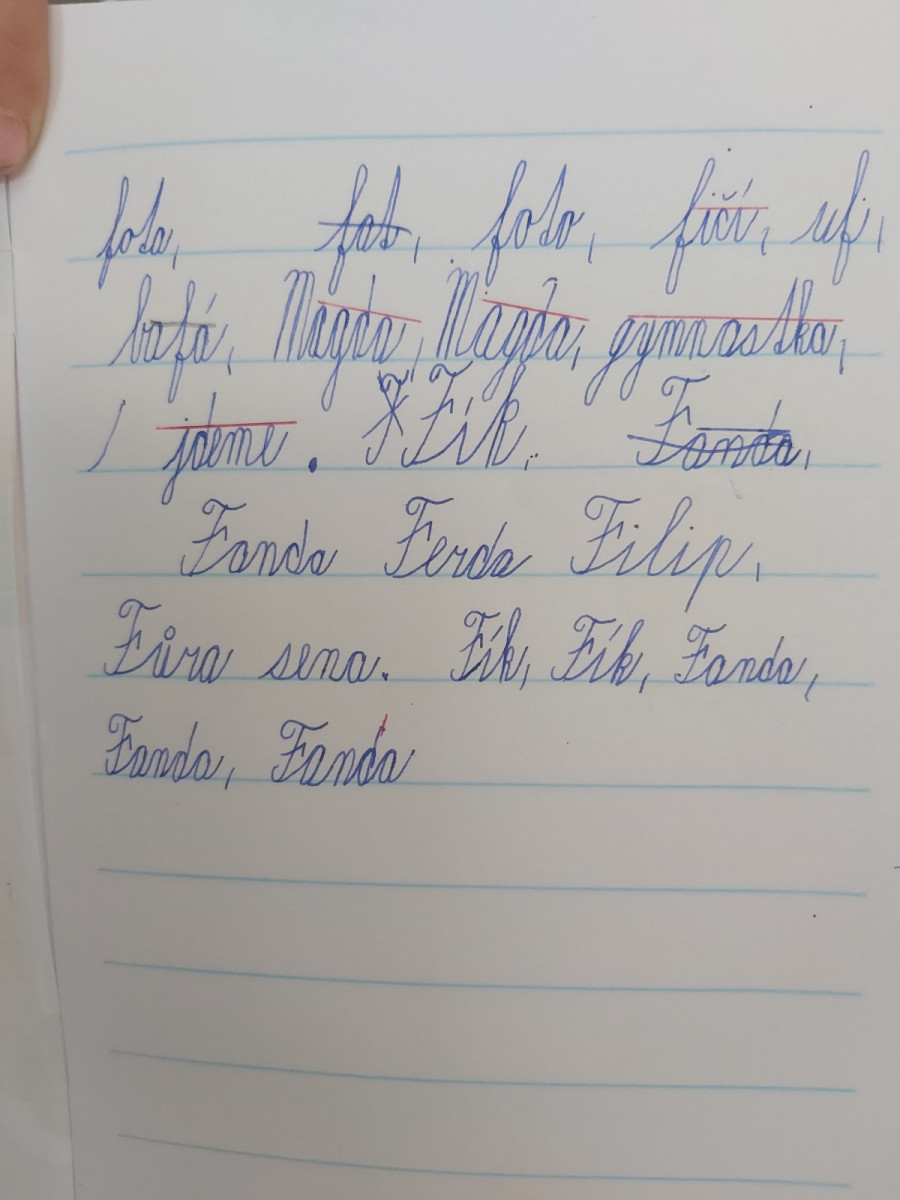 fota, fat, foto, fičí, uf,
bafá, Magda, Magda, gymnastka,
jdeme. F Fík. Fanda,
Fanda Ferda Filip,
Fůra sena. Fík, Fík, Fanda,
Fanda, Fanda